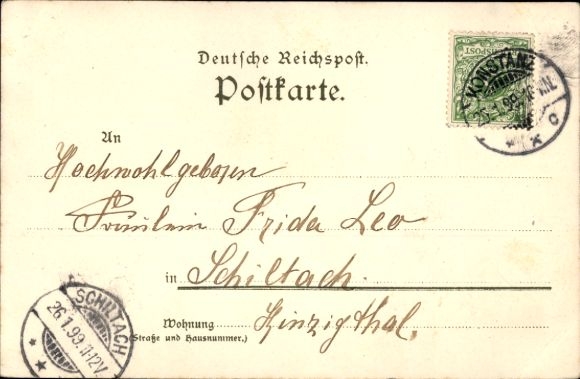 Deutsche Reichspost.
Postkarte.
KONSTANZ
25.1.99.
An
Hochwohlgeboren
Fräulein Frida Leo
in Schiltach.
Wohnung Kinzigthal.
(Straße und Hausnummer.)
SCHILTACH
26.1.99.11-12V.